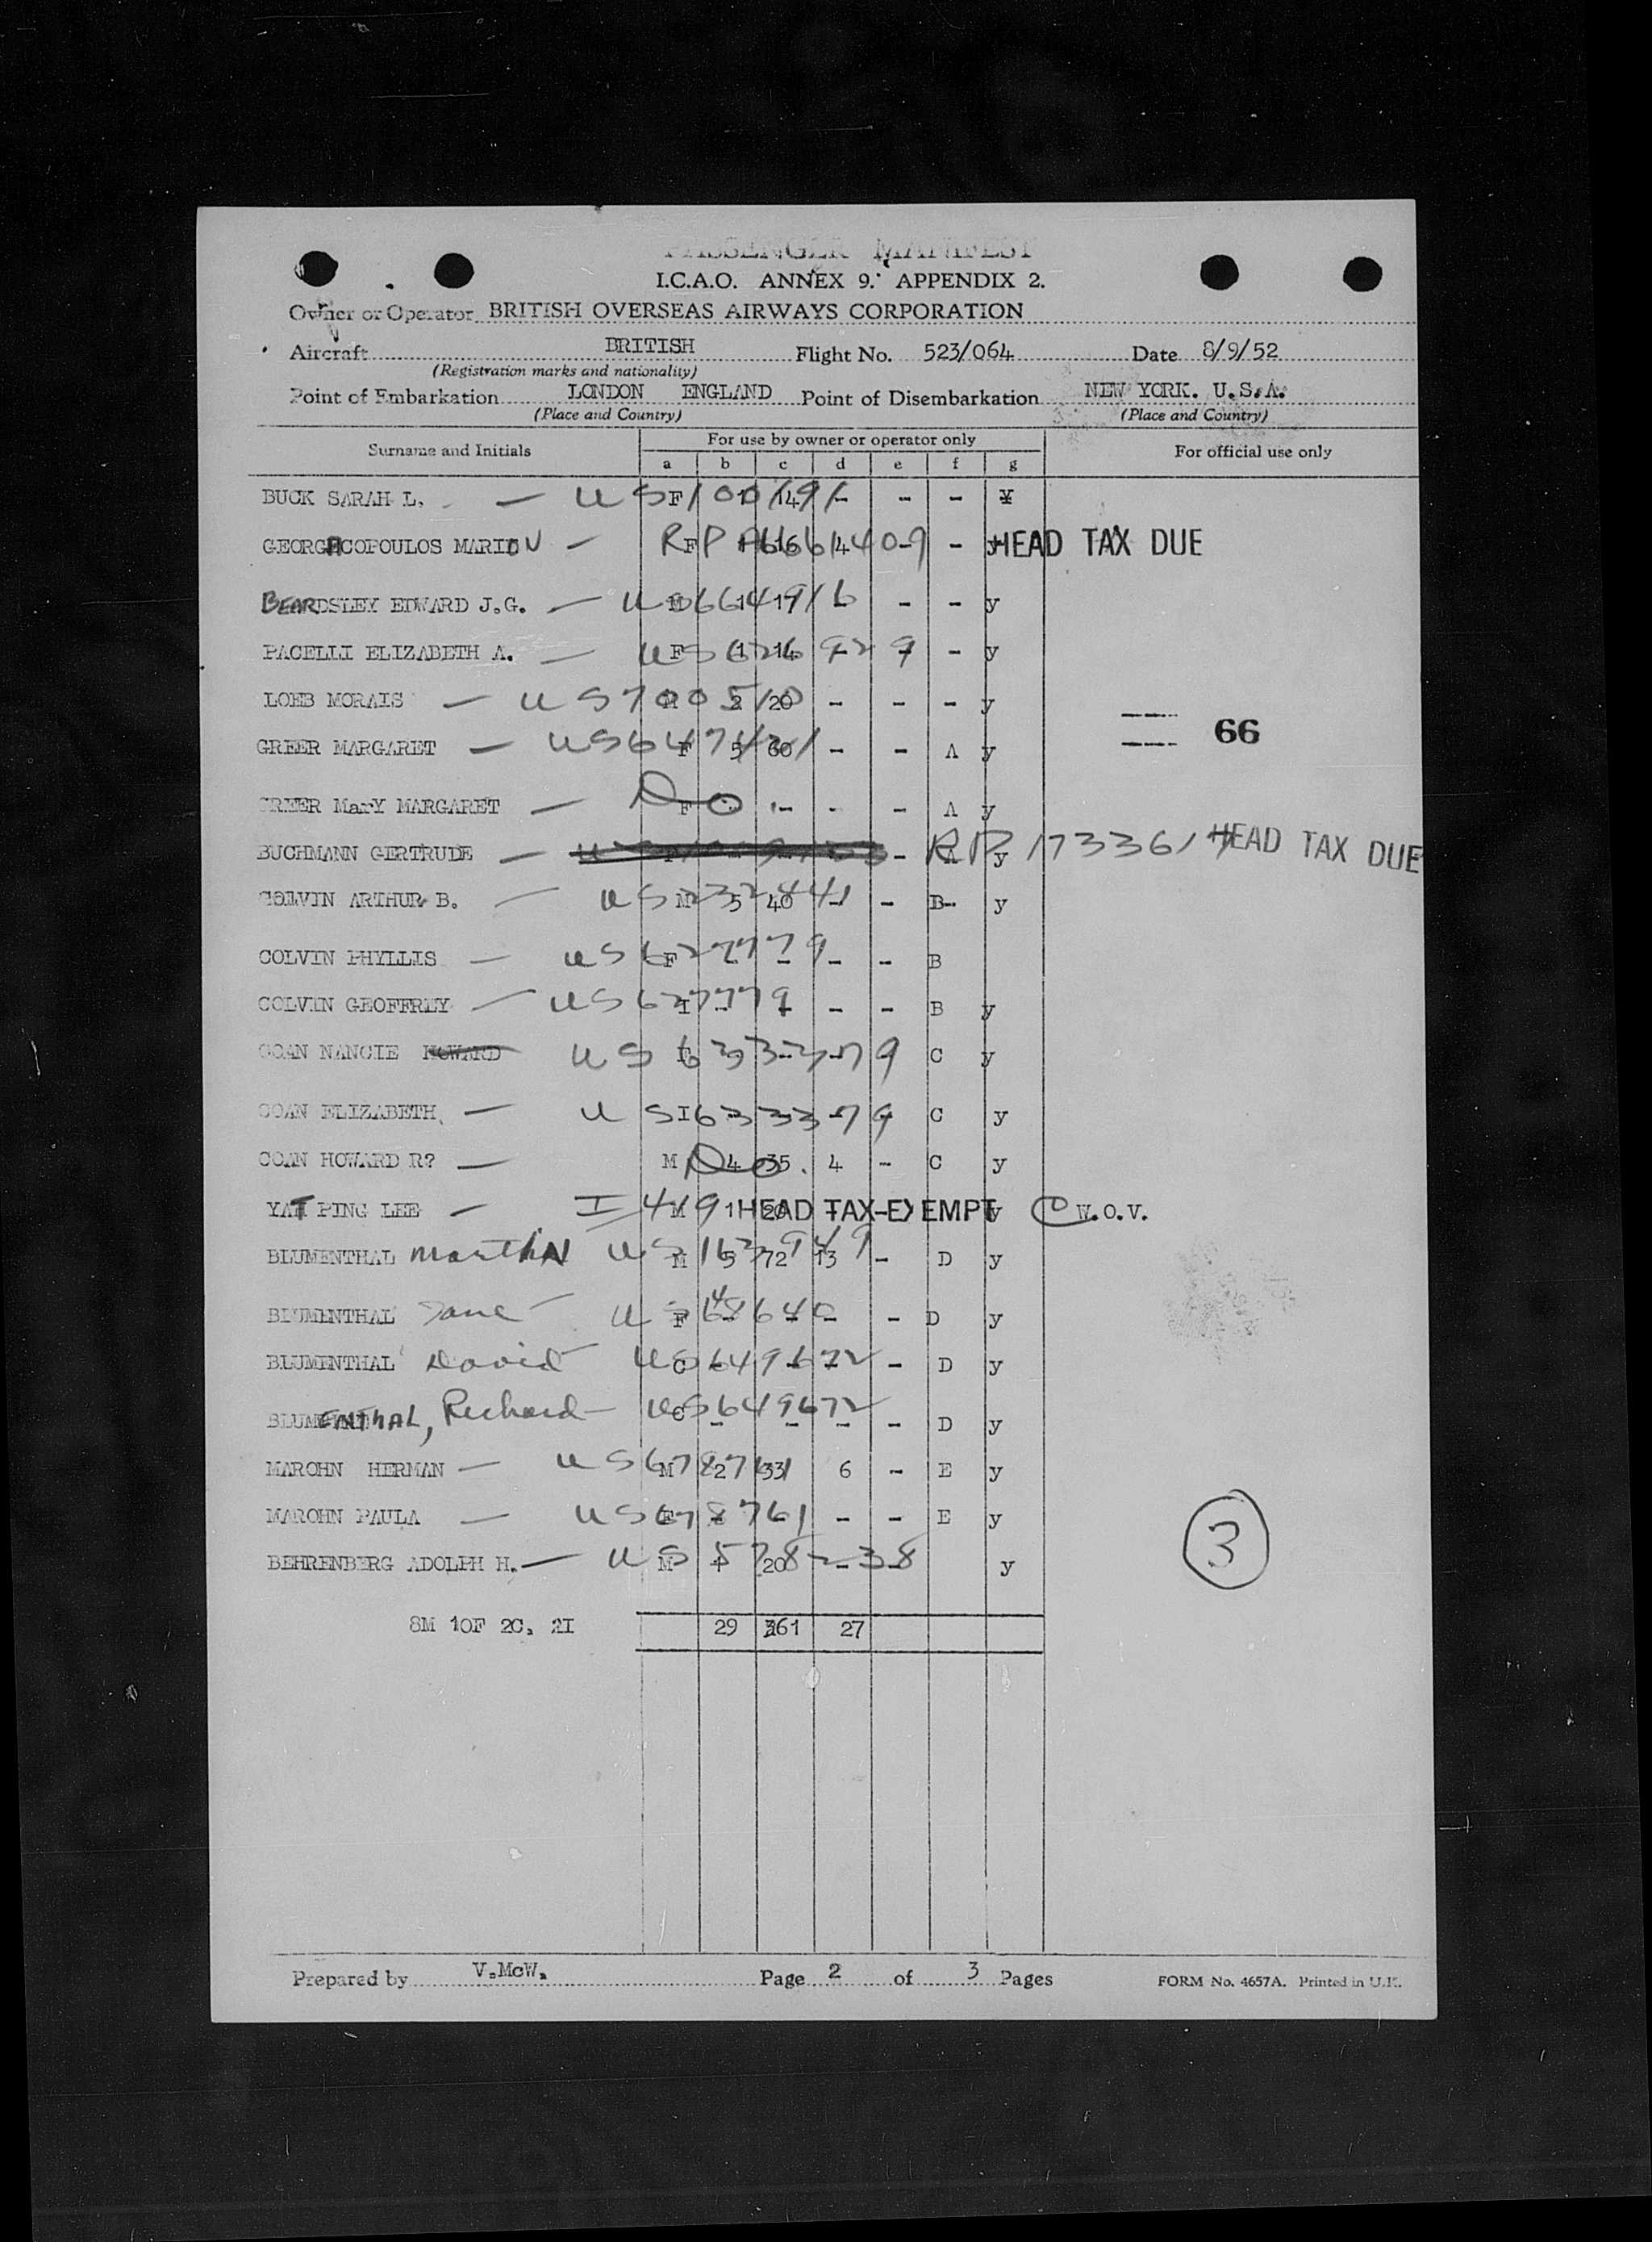 PASSENGER MANIFEST
I.C.A.O. ANNEX 9. APPENDIX 2.
Owner or Operator BRITISH OVERSEAS AIRWAYS CORPORATION
Aircraft BRITISH Flight No. 523/064 Date 8/9/52
(Registration marks and nationality)
Point of Embarkation LONDON ENGLAND Point of Disembarkation NEW YORK. U.S.A.
(Place and Country) (Place and Country)
Surname and Initials For use by owner or operator only For official use only
a b c d e f g
BUCK SARAH L. — US F 14 - - - Y
GEORGACOPOULOS MARION — RP F 16 4 - - y HEAD TAX DUE
BEARDSLEY EDWARD J.G. — US M 1 19 - - - y
PACELLI ELIZABETH A. — US F 1 14 - - - y
LOEB MORAIS — US M 2 20 - - - y
66
GREER MARGARET — US F 5 60 - - A y
GREER MarY MARGARET — Do F - - - A y
BUCHMANN GERTRUDE — - RP 173361 A y HEAD TAX DUE
COLVIN ARTHUR B. — US M 5 40 - - B- y
COLVIN PHYLLIS — US 627779 F - - - - B
COLVIN GEOFFREY — US 627779 I - - - - B y
COAN NANCIE HOWARD US 633379 F - - - C y
COAN ELIZABETH, — US 633379 I - - - C y
COAN HOWARD R? — Do. M 4 35 4 - C y
YAT PING LEE — M 1 20 HEAD TAX-EXEMPT y W.O.V.
BLUMENTHAL Martin US M 5 72 13 - D y
BLUMENTHAL Jane — US F - - - - D y
BLUMENTHAL David — US 649672 C - - - D y
BLUMENTHAL, Richard — US 649672 C - - - - D y
MAROHN HERMAN — US 678761 M 2 33 6 - E y
MAROHN PAULA — US 678761 F - - - - E y
BEHRENBERG ADOLPH H. — US 578238 M 1 20 - - y
3
8M 10F 2C, 2I 29 361 27
Prepared by V.McW. Page 2 of 3 Pages FORM No. 4657A. Printed in U.K.